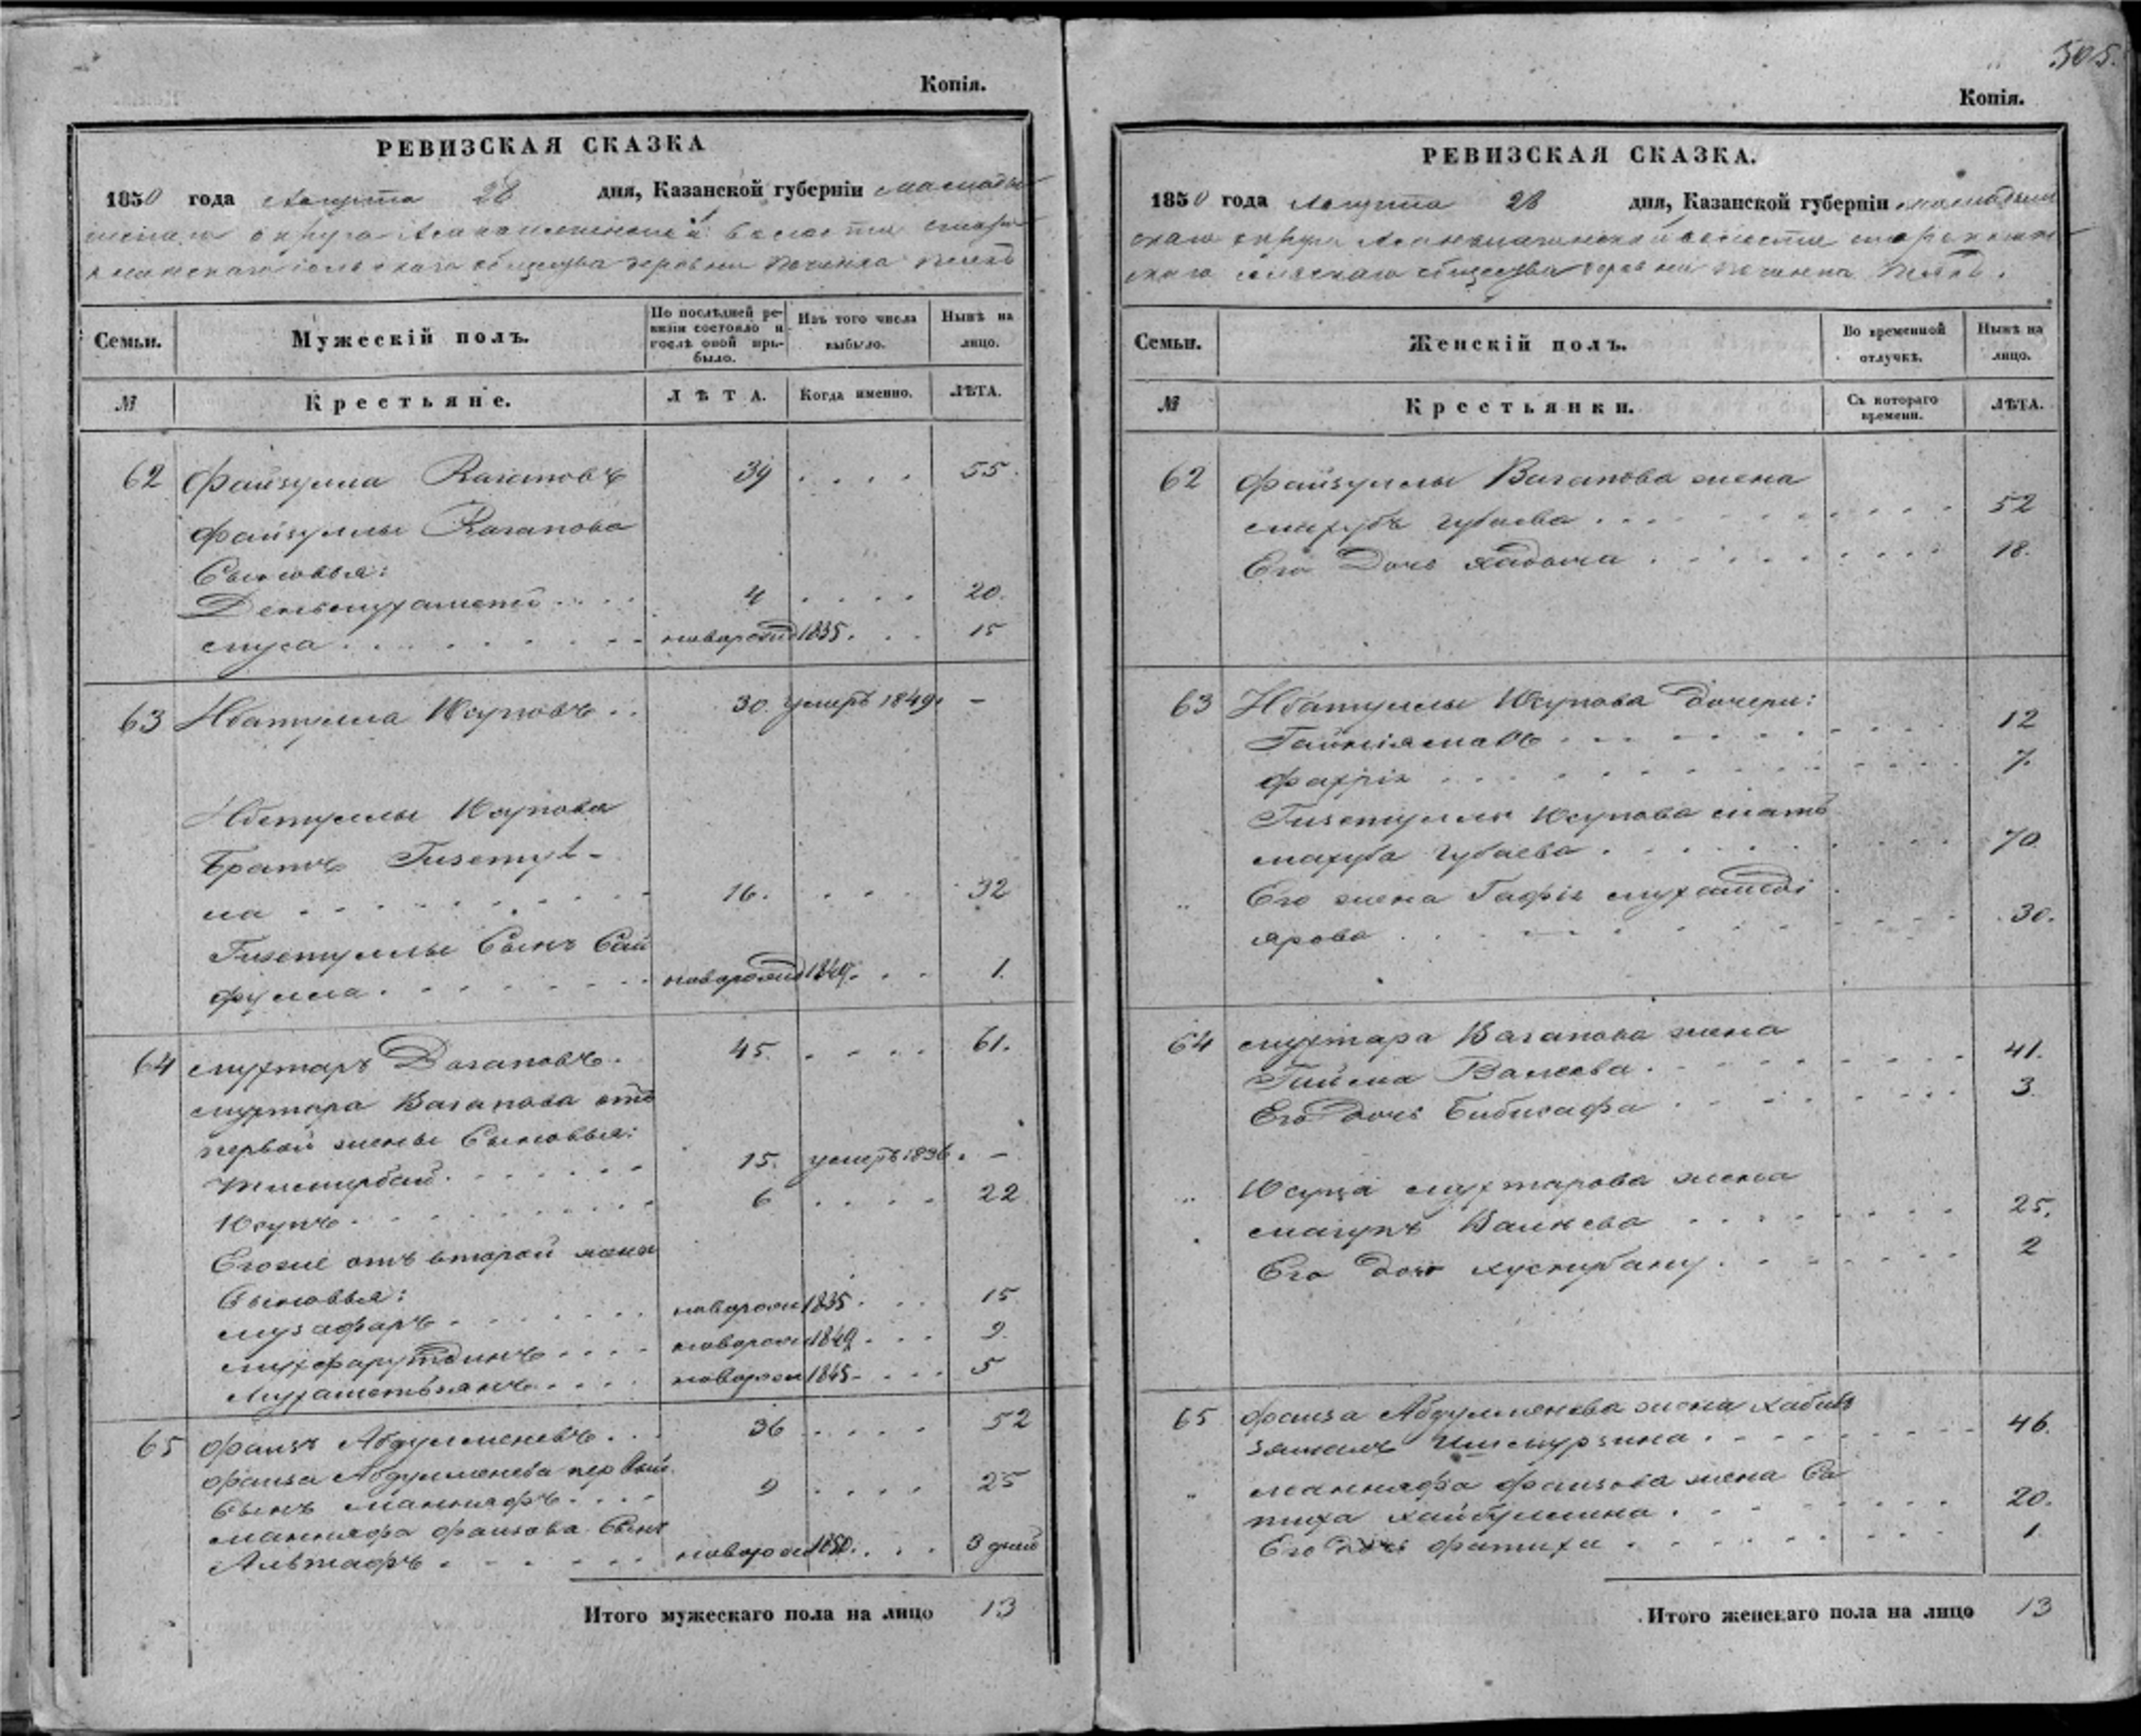 Копія.
РЕВИЗСКАЯ СКАЗКА
1850 года Августа 28 дня, Казанской губерніи мамадыш
скаго округа волости
сельскаго общества деревни починка
Семьи.
Мужескій полъ.
По послѣдней ревизіи состояло и послѣ оной прибыло.
Изъ того числа выбыло.
Нынѣ на лицо.
№
Крестьяне.
ЛѢТА.
Когда именно.
ЛѢТА.
62 Файзулла Вагаповъ 39 . . . . 55.
Файзуллы Вагапова
Сыновья:
Деньмухаметъ . . . . 4 . . . . 20.
муса . . . . новорожд 1835 . . . 15
63 Ибатулла Юсуповъ . . 30. умеръ 1849. —
Ибетуллы Юсупова
Братъ Гизетул-
ла . . . . 16. . . . 32
Гизетуллы Сынъ Сай
фулла . . . . новорожд 1849. . . . 1.
64 мухтаръ Вагаповъ . 45. . . . . 61.
мухтара Вагапова отъ
первой жены Сыновья:
. . . . 15. умеръ 1836. —
Юсупъ . . . . 6 . . . . 22
Егоже отъ второй жены
Сыновья:
музафаръ . . . . новорож 1835 . . . 15
. . . . новорож . . . 9.
Мухаметьзянъ . . . . новорож 1845 . . . . 5
65 Фаизъ Абдулменевъ . . . 36 . . . . 52
Фаиза Абдулменева первый
Сынъ маннафъ . . . . 9 . . . . 25
маннафа Фаизова Сынъ
Альтафъ . . . . новорож 1850. . . . 3 дней
Итого мужескаго пола на лицо 13
505.
Копія.
РЕВИЗСКАЯ СКАЗКА.
1850 года Августа 28 дня, Казанской губерніи мамадыш
скаго округа волости
скаго сельскаго общества деревни починка
Семьи.
Женскій полъ.
Во временной отлучкѣ.
Нынѣ на лицо.
№
Крестьянки.
Съ котораго времени.
ЛѢТА.
62 Файзуллы Вагапова жена
махубъ Губаева . . . . 52
Его Дочь Хадыча . . . . 18.
63 Ибатуллы Юсупова Дочери:
Гайніямалъ . . . . 12
Фахрія . . . . 7.
Гизетуллы Юсупова мать
махуба Губаева . . . . 70
„ Его жена Гафія мухаметді
ярова . . . . 30.
64 мухтара Вагапова жена
Валеева . . . . 41.
Его Дочь Бибисафа . . . . 3.
„ Юсупа мухтарова жена
магупъ Валиева . . . . 25.
Его Дочь хуснурбану . . . . 2
65 Фаиза Абдулменева жена Хабиб
зямалъ Ишмурзина . . . . 46.
„ маннафа Фаизова жена Са
пиха Хайбуллина . . . . 20.
Его Дочь Фатиха . . . . 1
Итого женскаго пола на лицо 13